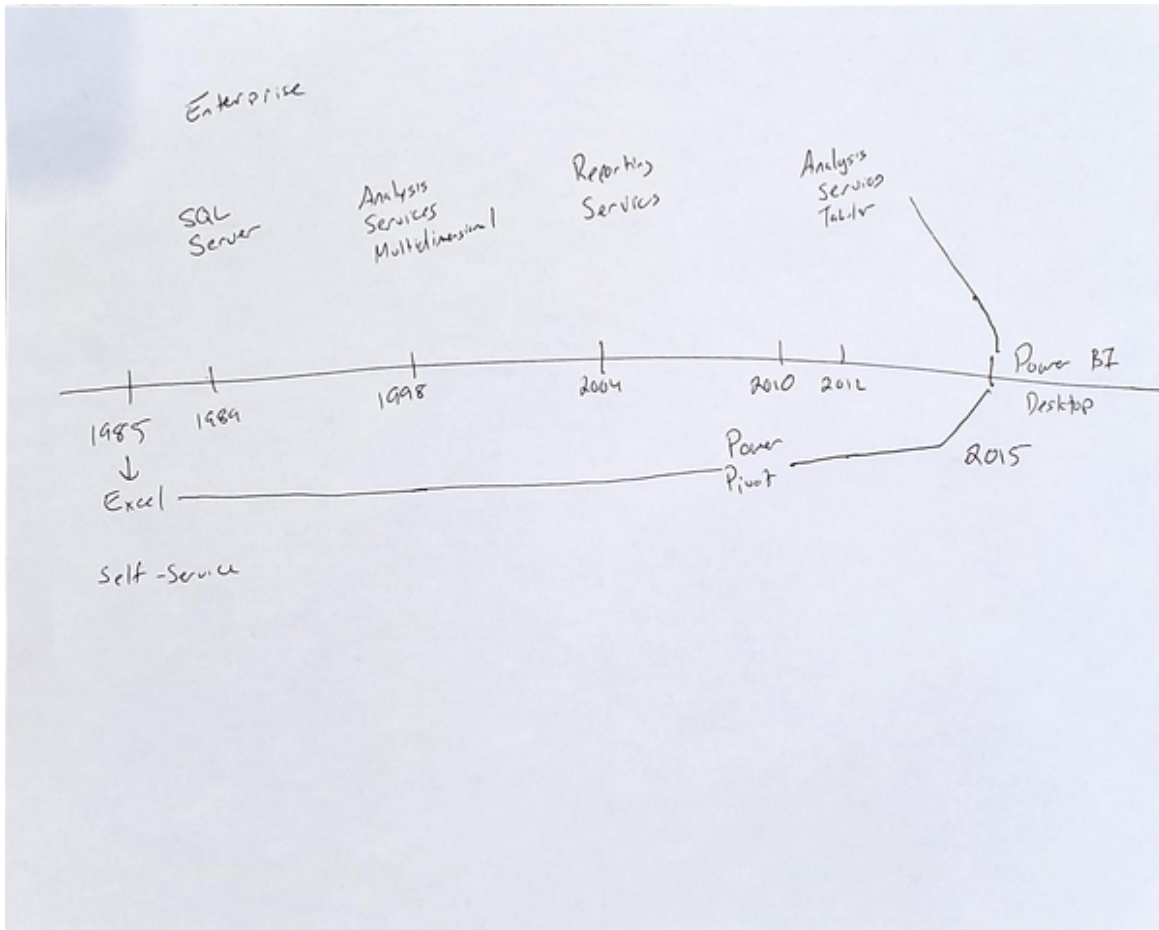 Enterprise
SQL
Server
Analysis
Services
Multidimensional
Reporting
Services
Analysis
Services
Tabular
1985
1989
1998
2004
2010
2012
Power BI
Desktop
2015
Excel
Power
Pivot
Self-Service